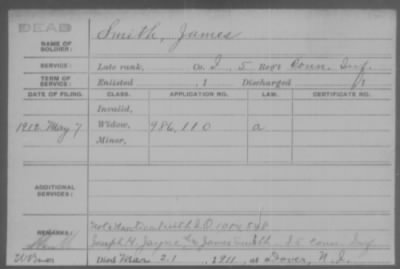 DEAD
NAME OF SOLDIER: Smith, James
SERVICE: Late rank, Co. I, 5 Reg't Conn. Inf.
TERM OF SERVICE: Enlisted , 1 Discharged , 1
DATE OF FILING. CLASS. APPLICATION NO. LAW. CERTIFICATE NO.
Invalid,
1912 May 7 Widow, 986,110 a
Minor,
ADDITIONAL SERVICES:
REMARKS:
Joseph H. Jayne James Smith Conn. Inf.
Died Mar 21, 1911, at Dover, N.J.